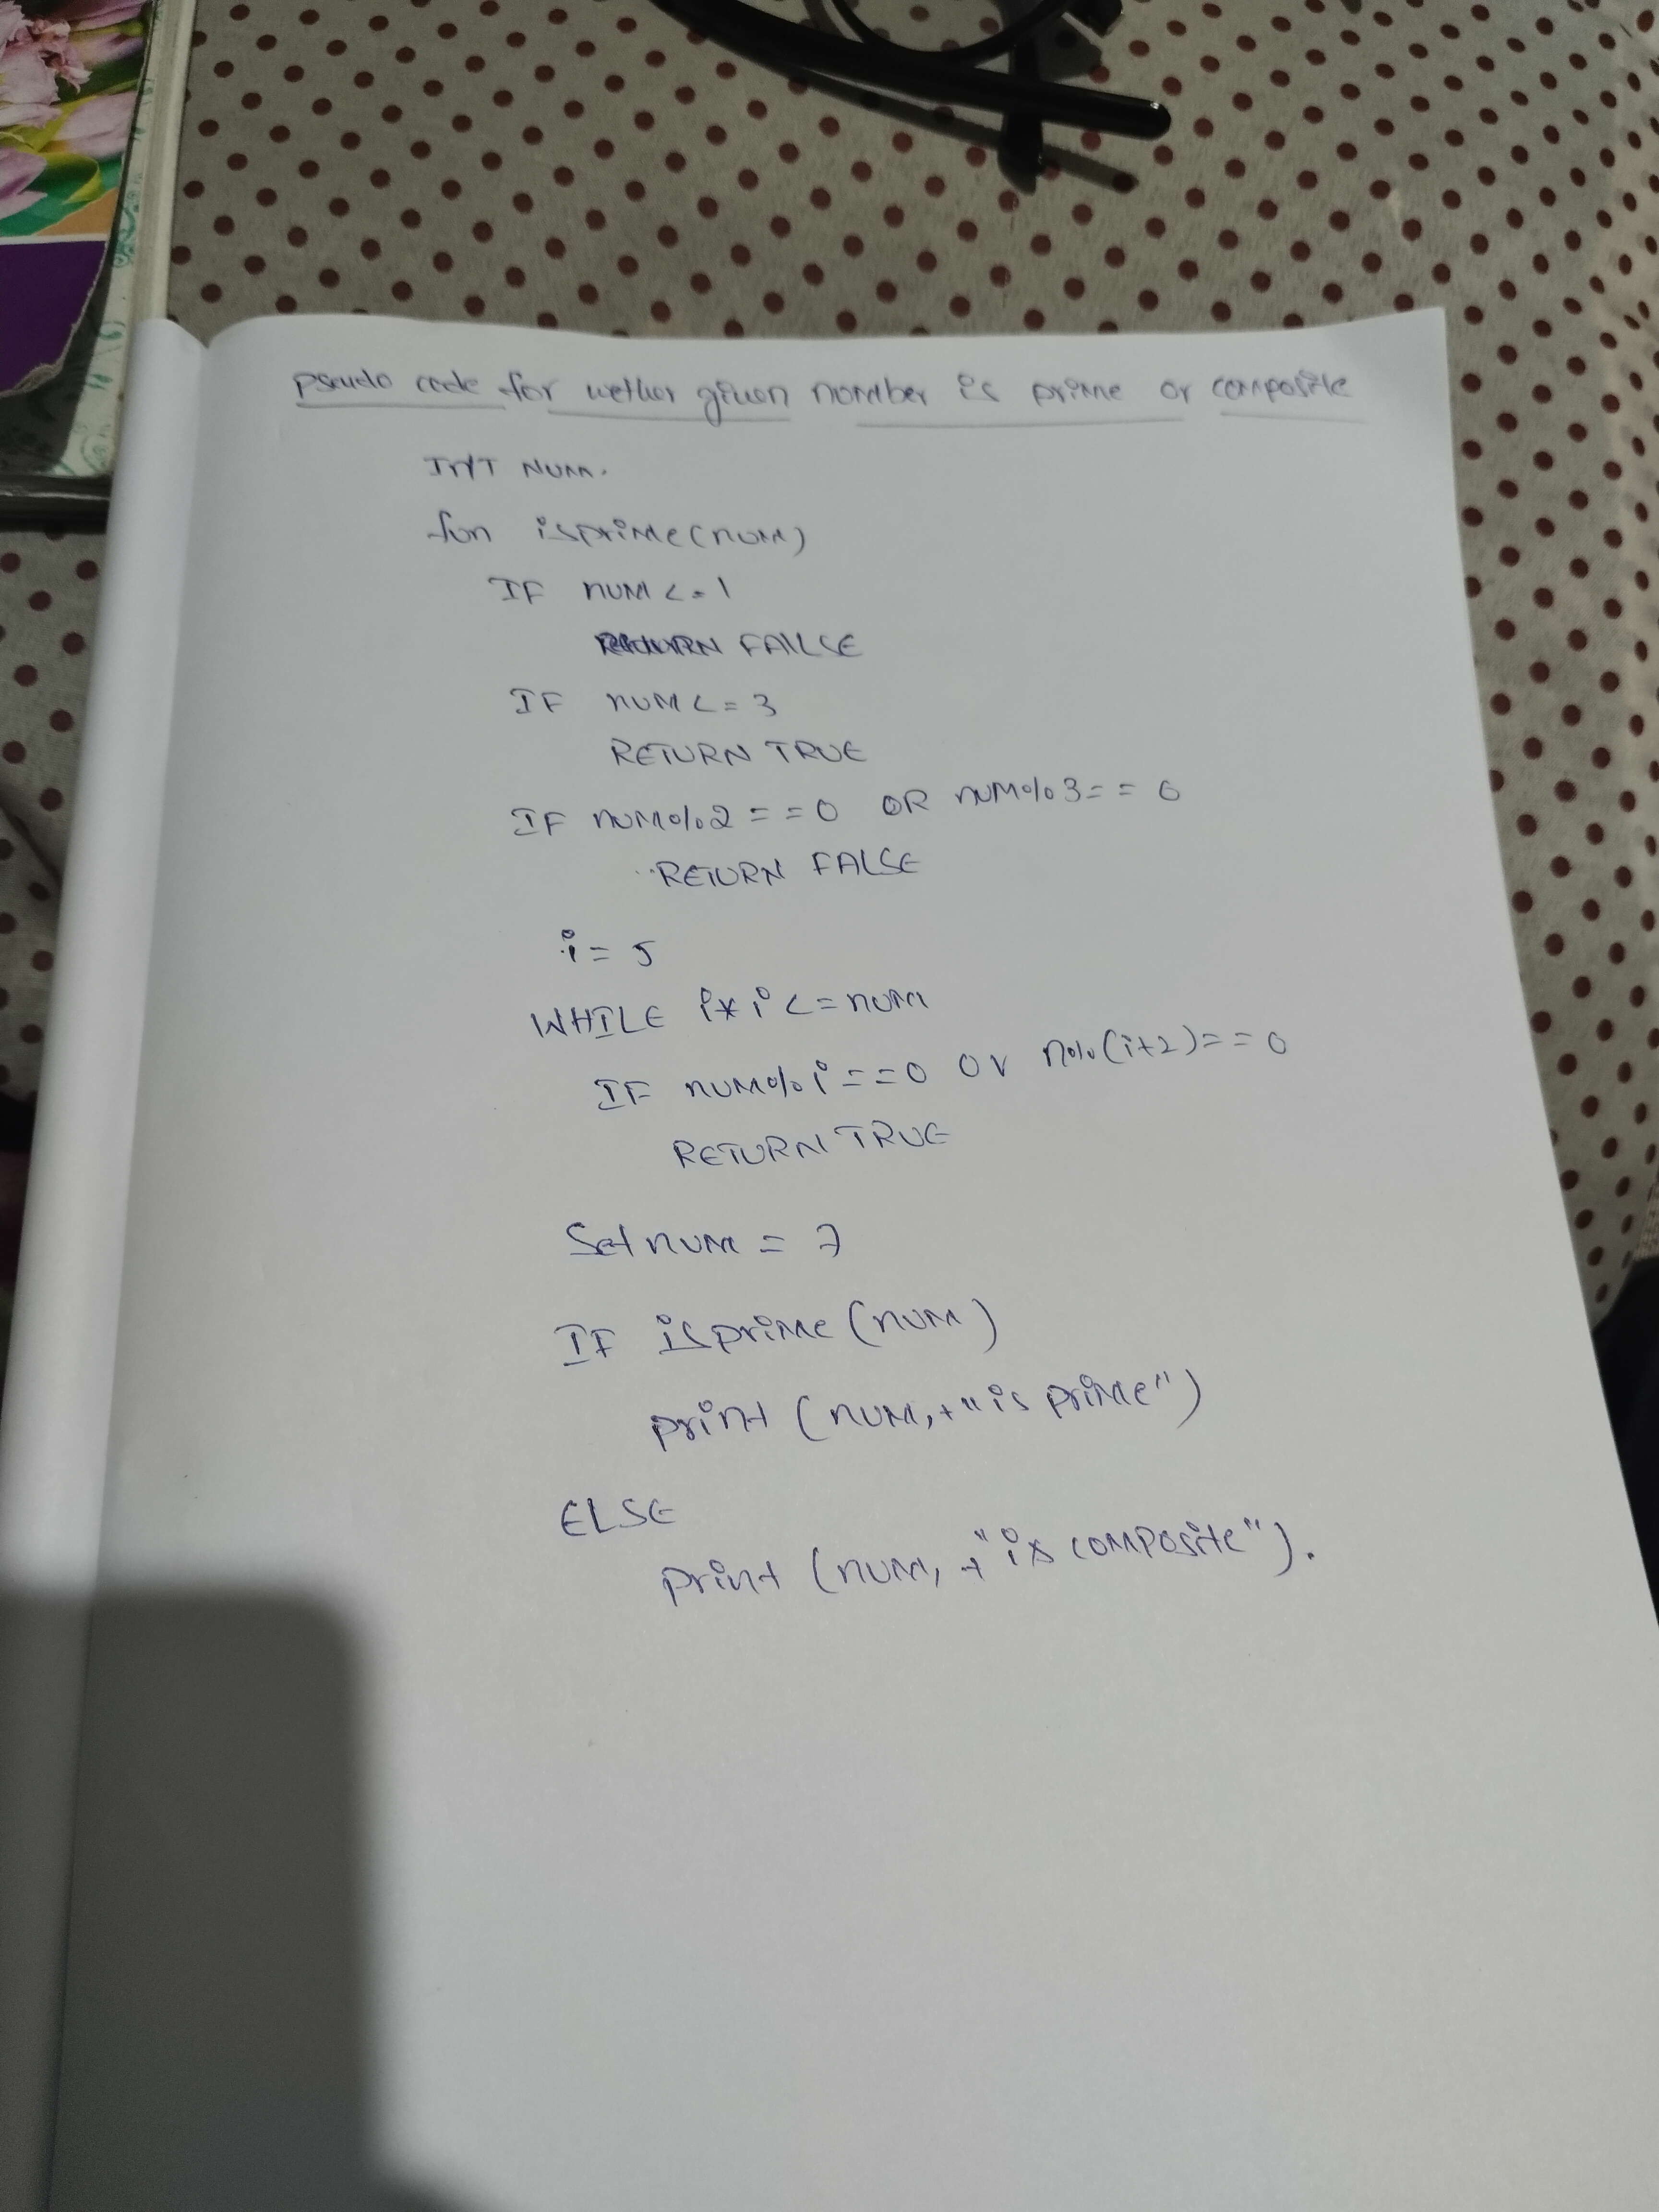 pseudo code for wether given nomber is prime or composite
INT NUM.
fun isprime(num)
IF NUM <= 1
RETURN FAILSE
IF NUM <= 3
RETURN TRUE
IF NUM%2 = = 0 OR NUM%3 = = 0
RETURN FALSE
i = 5
WHILE i*i <= num
IF NUM%i = = 0 Or n%(i+2) = = 0
RETURN TRUE
Set num = 7
IF isprime (num)
print (num, + "is prime")
ELSE
print (num, + "is composite").